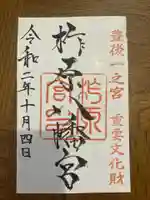 豊後一之宮　重要文化財
柞原八幡宮
令和二年十月四日